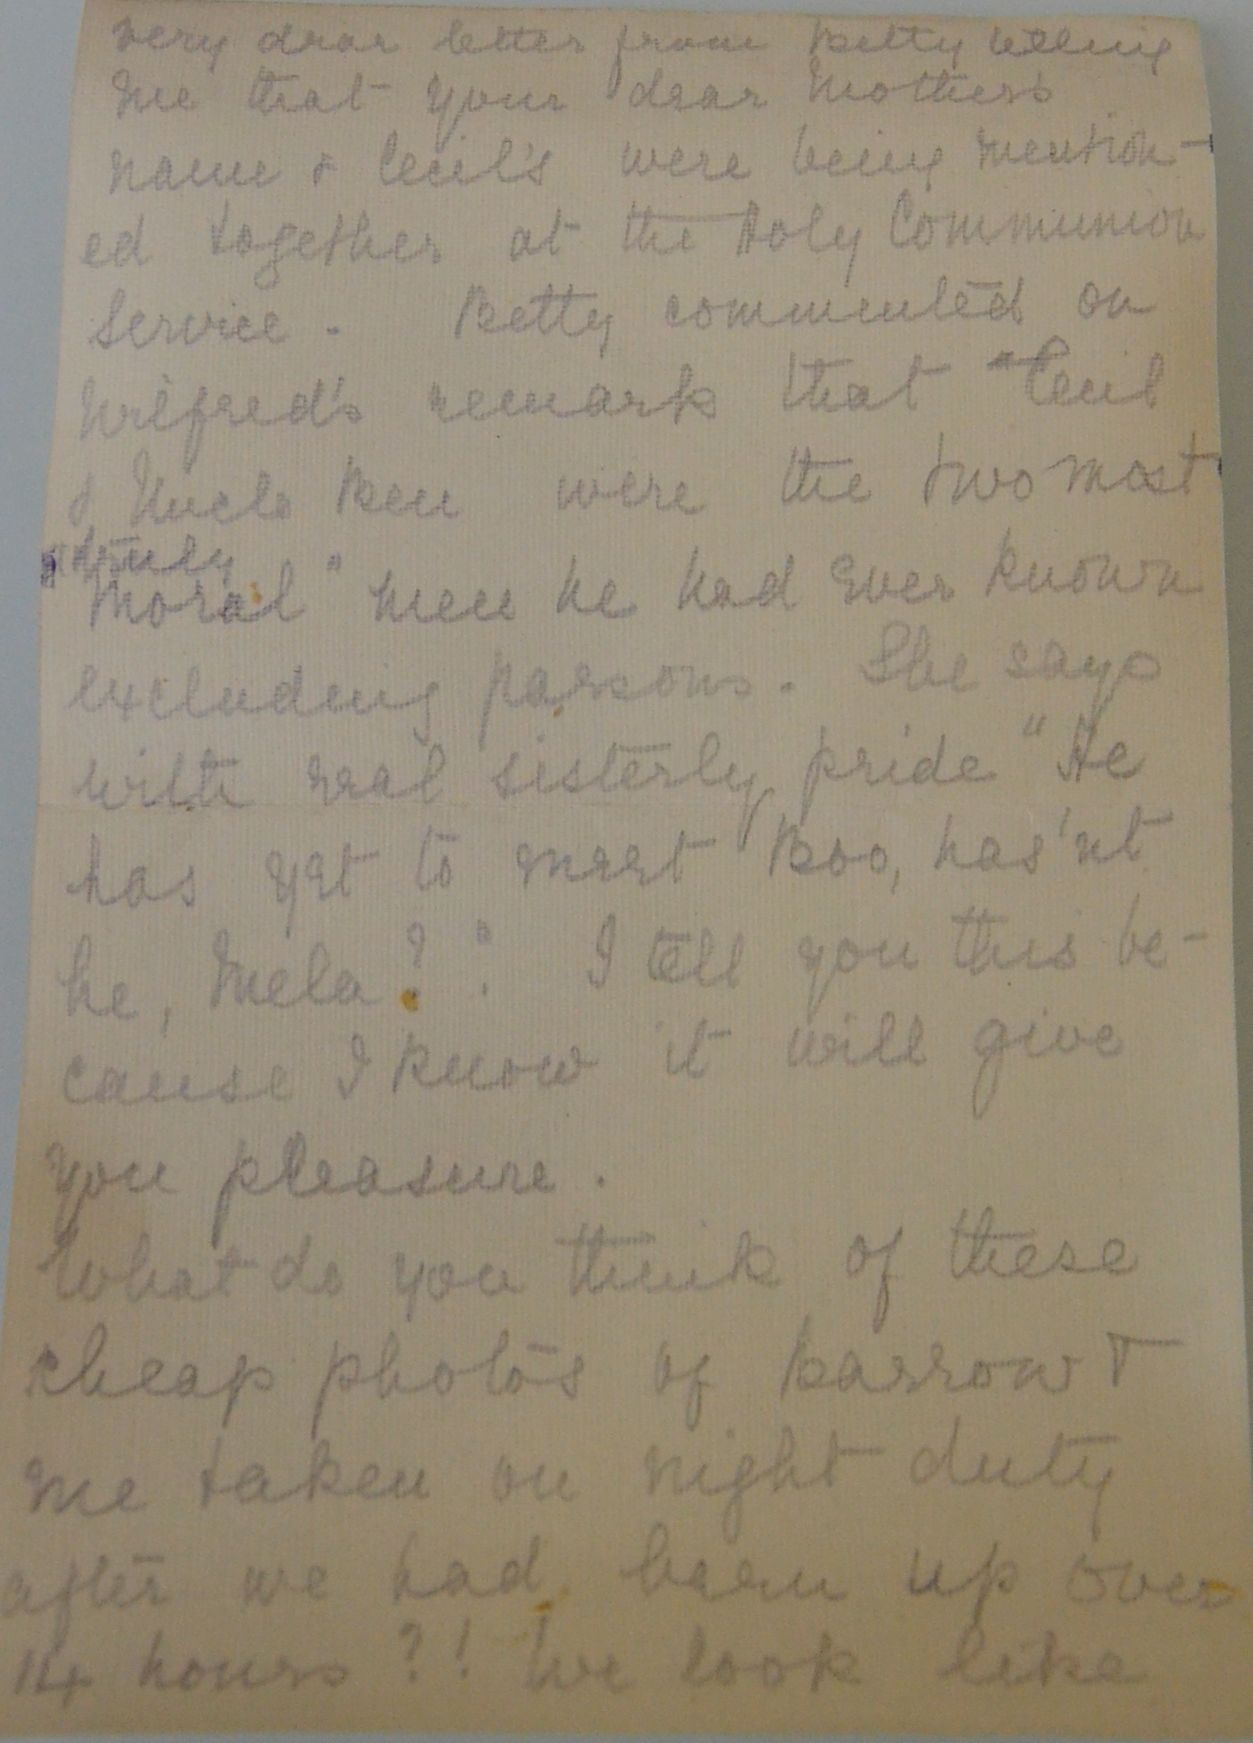 very dear letter from Betty telling
me that your dear Mother's
name & Cecil's were being mention-
ed together at the Holy Communion
Service. Betty commented on
Wilfred's remark that "Cecil
& Uncle Ben were the two most
truly
moral" men he had ever known
excluding parsons. She says
with real sisterly pride "He
has yet to meet Boo, has'nt
he, Mela?" I tell you this be-
cause I know it will give
you pleasure.
What do you think of these
cheap photos of Barrow &
me taken on night duty
after we had been up over
14 hours?! We look like